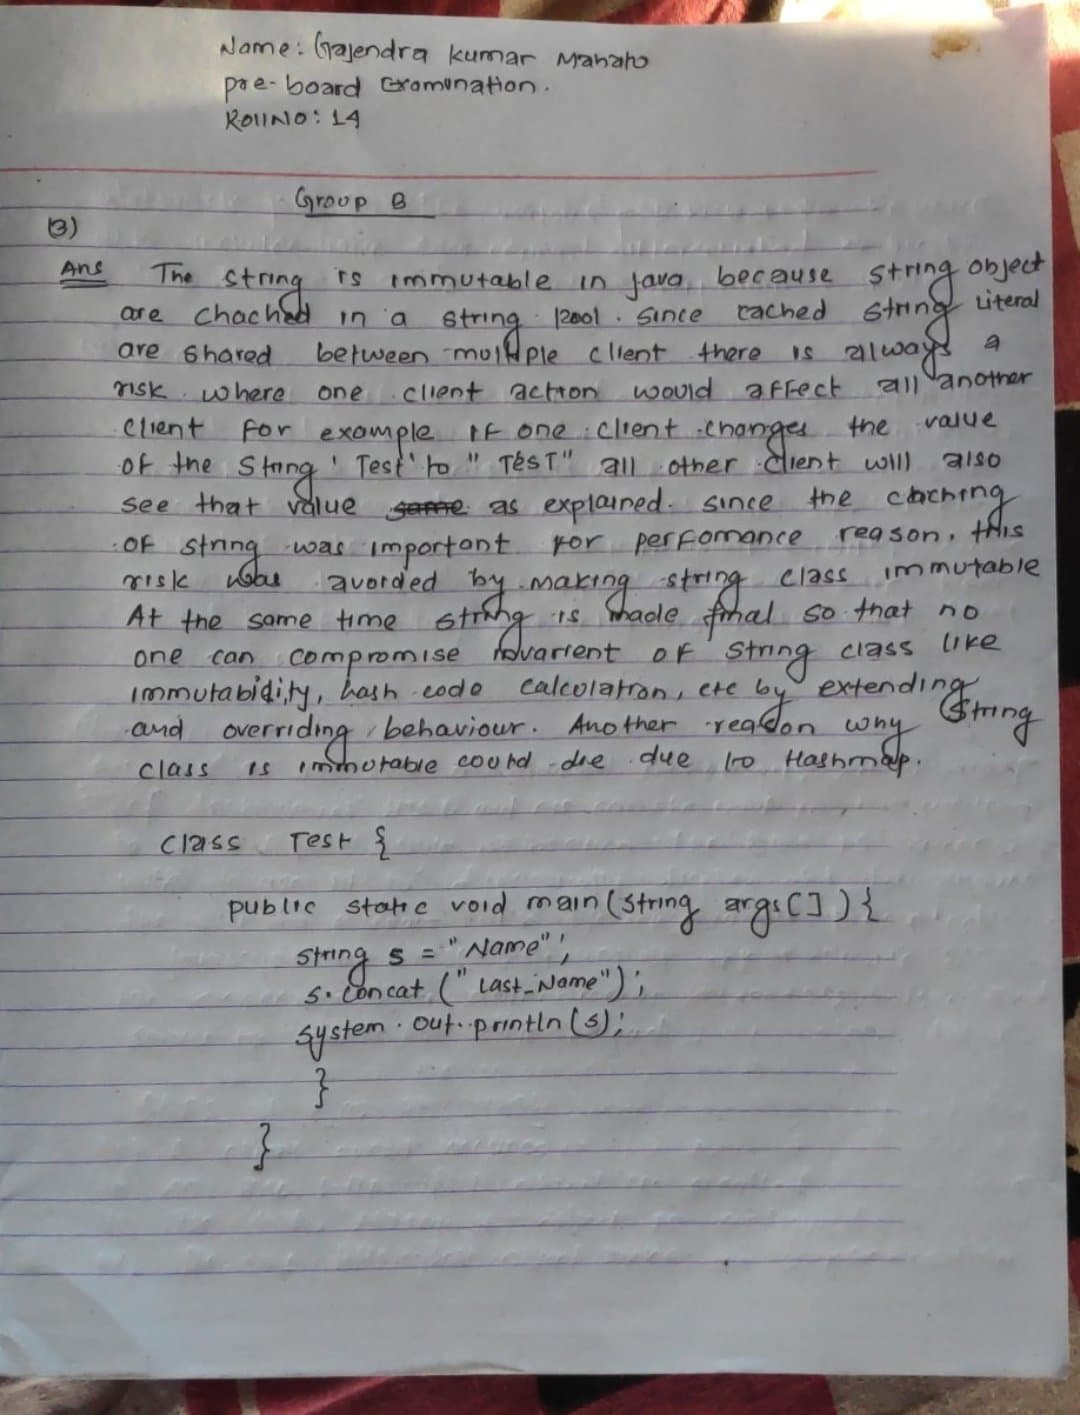 Name: Gajendra kumar Mahato
pre-board Examination.
Roll No: 14
Group B
13)
Ans The string is immutable in java, because string object
are chached in a string pool. Since cached string Literal
are shared between multiple client there is always a
risk. where one client action would affect all another
client for example If one client changes the value
of the string 'Test' to "TEST" all other client will also
see that value same as explained. since the caching
of string was important for perfomance reason, this
risk was avoided by making string class immutable
At the same time string is made final so that no
one can compromise invarient of string class like
immutabidity, hash code calculation, etc by extending
and overriding behaviour. Another reason why String
class is immutable could die due to Hashmap.
class Test {
public static void main(string args[]){
string s = "Name";
s.concat ("Last_Name");
system.out.println(s);
}
}